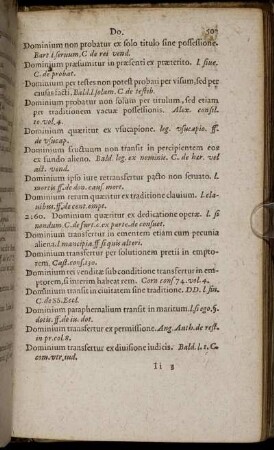 Do. 50
Dominium non probatur ex solo titulo sine possessione.
Bart l. seruum, C. de rei vend.
Dominium præsumitur in præsenti ex præterito. l. siue,
C. de probat.
Dominium per testes non potest probari per visum, sed per
causas facti, Bald. l. solam. C. de testib.
Dominium probatur non solum per titulum, sed etiam
per traditionem vacuæ possessionis. Alex. consil.
te. vol. 4.
Dominium quæritur ex vsucapione. leg. vsucapio. ff.
de vsucap.
Dominium fructuum non transit in percipientem eos
ex fundo alieno. Bald. leg. ex nominis. C. de her. vel
act. vend.
Dominium ipso iure retransfertur pacto non seruato. l.
mortis ff. de don. caus. mort.
Dominium rerum quæritur ex traditione clauium. l. cla-
uibus. ff. de cont. empt.
2160. Dominium quæritur ex dedicatione operæ. l. si
nondum. C. de furt. c. ex parte. de consuet.
Dominium transfertur in ementem etiam cum pecunia
aliena. l. mancipia. ff si quis alteri.
Dominium transfertur per solutionem pretii in empto-
rem. Cast. cons. 150.
Dominium rei venditæ sub conditione transfertur in em-
ptorem, si interim habeat rem. Corn cons 74. vol. 4.
Dominium transit in ciuitatem sine traditione. DD. l. fin.
C. de ss. Eccl.
Dominium paraphernalium transit in maritum. l. si ego. §.
dotis. ff. de iu. dot.
Dominium transfertur ex permissione. Ang. Auth. de rest.
in pr. col. 8.
Dominium transfertur ex diuisione iudicis. Bald. l. 1. C.
com. vtr, iud.
Ii 8